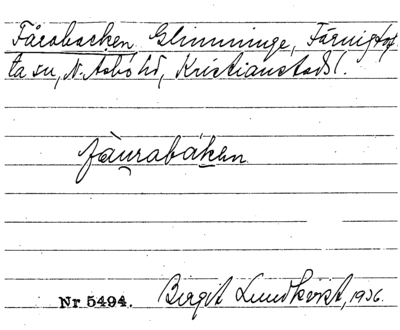 Fårabacken Glimminge, Färingtof-
ta sn, N. Åsbo hd, Kristianstads l.
fåu̯rabák̲en
Nr 5494. Birgit Lundkvist, 1936.